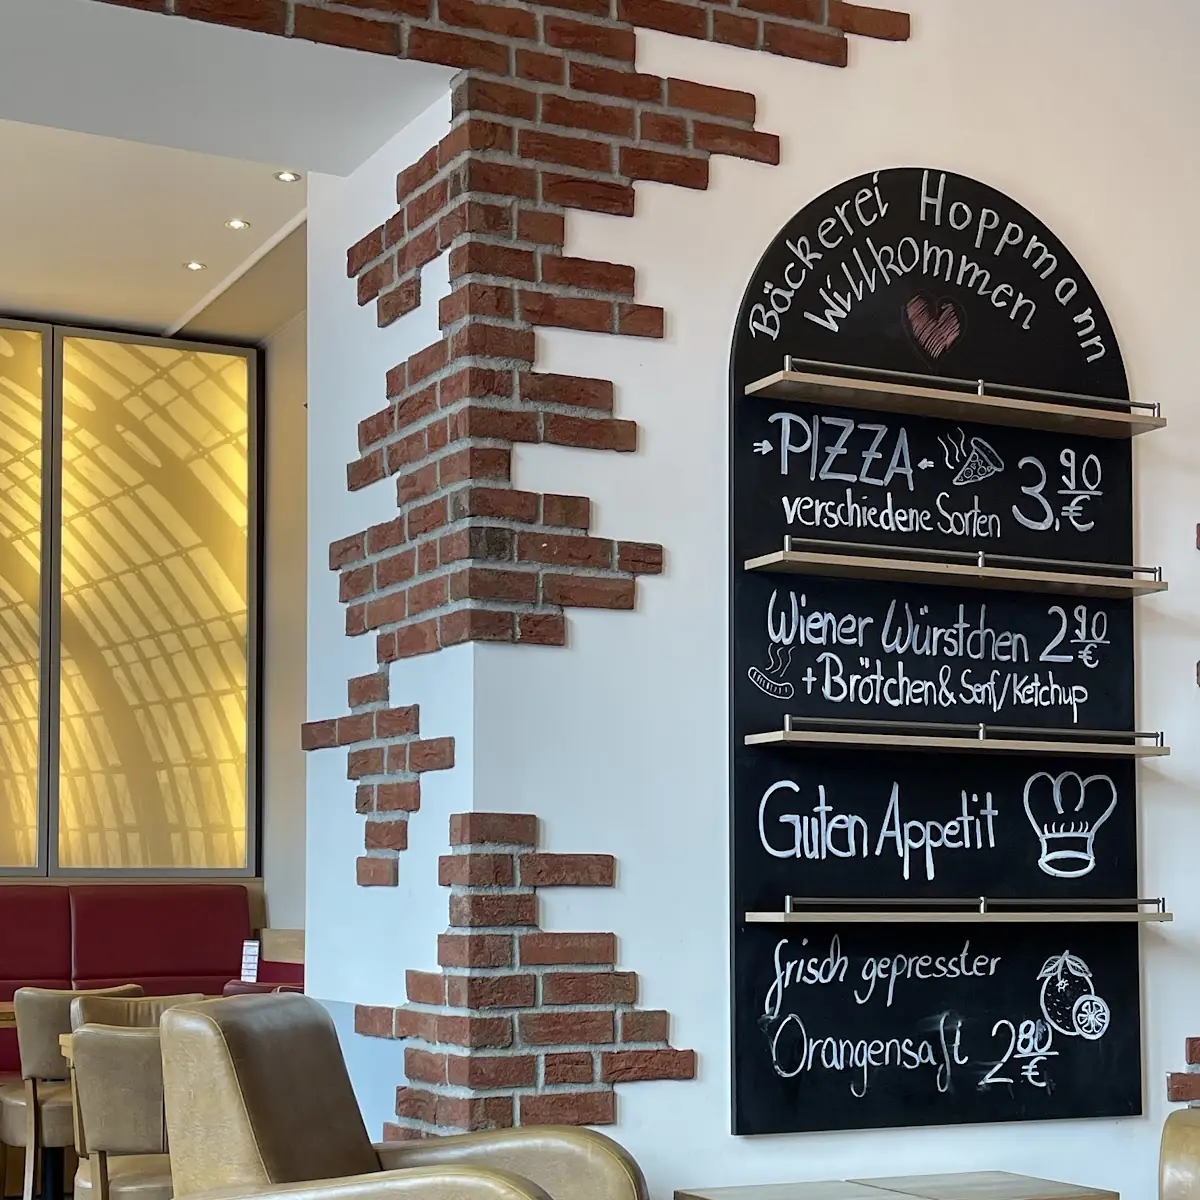 Bäckerei Hoppmann
Willkommen
PIZZA 3,90 €
verschiedene Sorten
Wiener Würstchen 2,90 €
+ Brötchen & Senf/Ketchup
Guten Appetit
frisch gepresster
Orangensaft 2,80 €